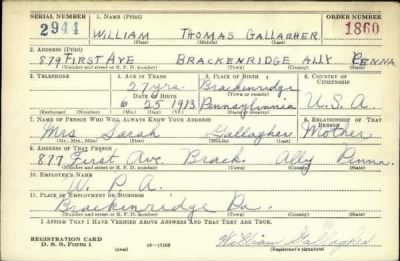 SERIAL NUMBER 1. NAME (Print) ORDER NUMBER
2944 WILLIAM THOMAS GALLAGHER 1860
(First) (Middle) (Last)
2. ADDRESS (Print)
879 FIRST AVE BRACKENRIDGE ALLY PENNA
(Number and street or R. F. D. number) (Town) (County) (State)
3. TELEPHONE 4. AGE IN YEARS 5. PLACE OF BIRTH 6. COUNTRY OF CITIZENSHIP
27 yrs. Brackenridge
DATE OF BIRTH (Town or county)
6 25 1913 Pennsylvania U.S.A.
(Exchange) (Number) (Mo.) (Day) (Yr.) (State or country)
7. NAME OF PERSON WHO WILL ALWAYS KNOW YOUR ADDRESS 8. RELATIONSHIP OF THAT PERSON
Mrs Sarah Gallagher Mother
(Mr., Mrs., Miss) (First) (Middle) (Last)
9. ADDRESS OF THAT PERSON
877 First Ave. Brack. Ally Penna.
(Number and street or R. F. D. number) (Town) (County) (State)
10. EMPLOYER'S NAME
W. P. A.
11. PLACE OF EMPLOYMENT OR BUSINESS
Brackenridge Pa.
(Number and street or R. F. D. number) (Town) (County) (State)
I AFFIRM THAT I HAVE VERIFIED ABOVE ANSWERS AND THAT THEY ARE TRUE.
REGISTRATION CARD
D. S. S. Form 1 (over) William Gallagher
(Registrant's signature)